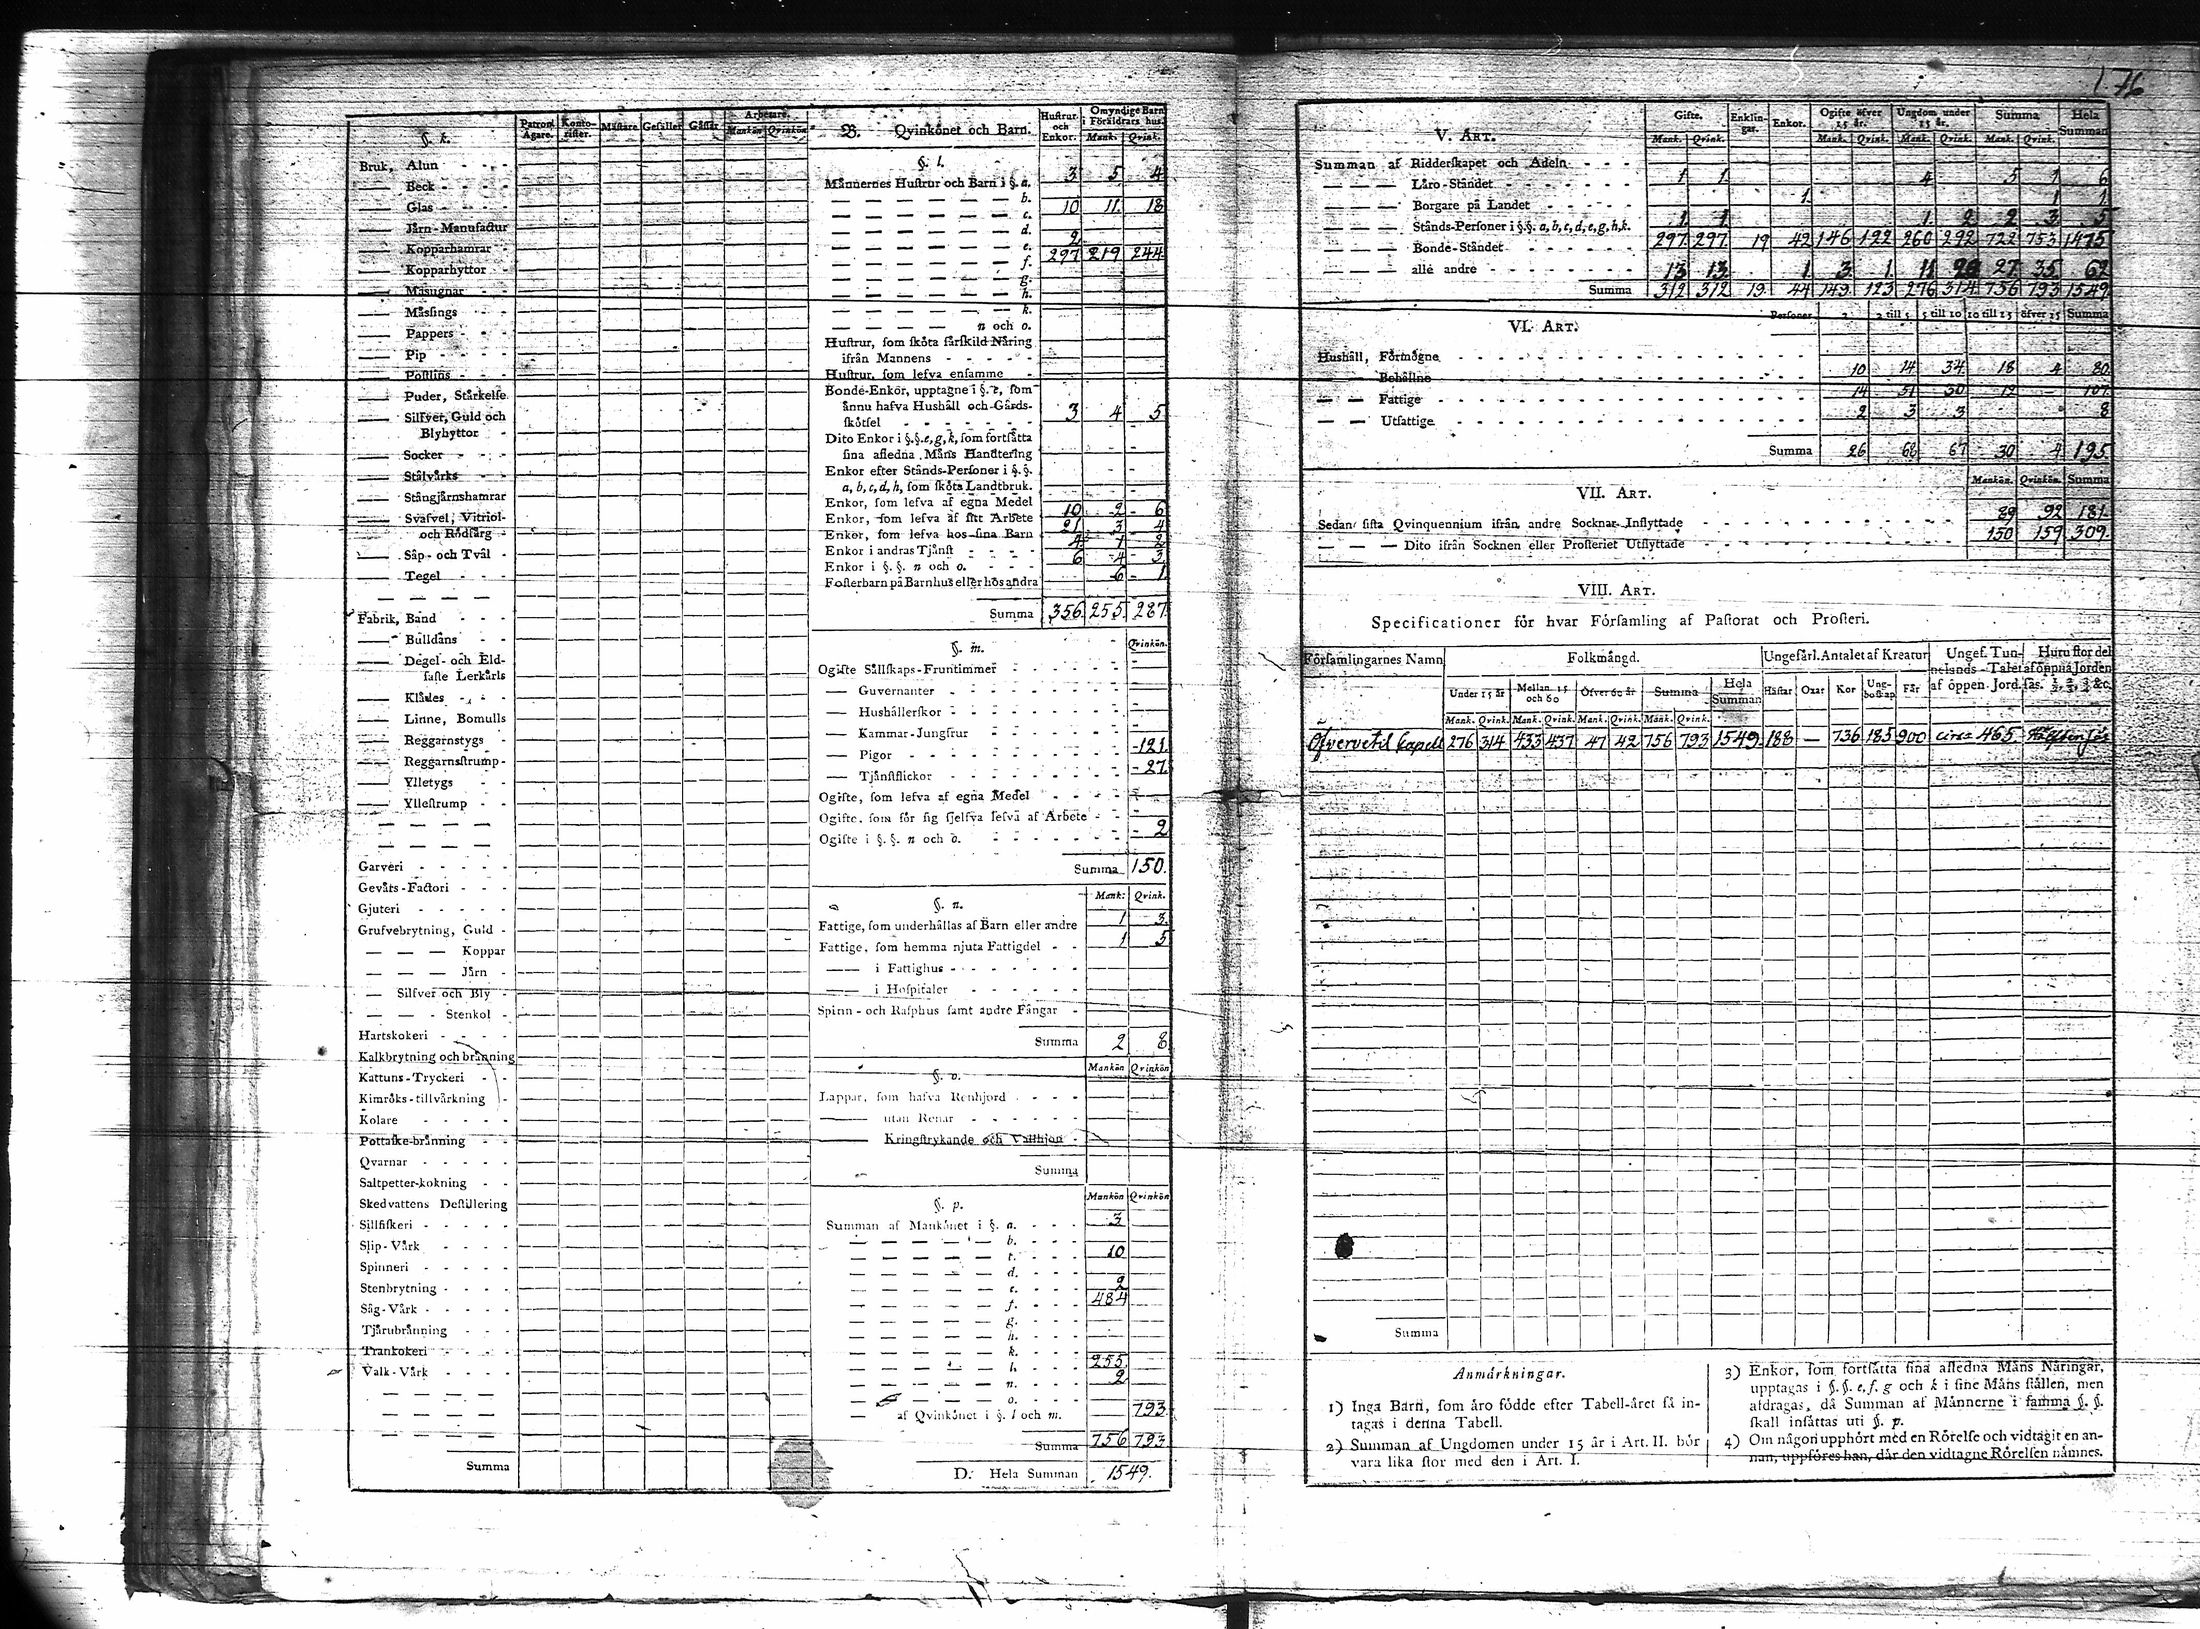 176
§. k.
Patron. Ägare. Konto- rister. Mästare Gesäller Gåssar Arbetare. Mankön Qvinkön
Bruk, Alun - - -
—— Beck - - -
—— Glas - - -
—— Järn-Manufactur
—— Kopparhamrar -
—— Kopparhyttor -
—— Masugnar - -
—— Mässings - -
—— Pappers - - -
—— Pip - - -
—— Postlins - - -
—— Puder, Stärkelse
—— Silfver, Guld och
Blyhyttor -
—— Socker - - -
—— Stålvärks - -
—— Stångjärnshamrar
—— Svafvel, Vitriol-
och Rödfärg -
—— Såp- och Tvål -
—— Tegel - - -
Fabrik, Band - - -
—— Bulldans - -
—— Degel- och Eld-
faste Lerkärls
—— Klädes - - -
—— Linne, Bomulls
—— Reggarnstygs -
—— Reggarnsstrump-
—— Ylletygs - -
—— Yllestrump - -
Garveri - - - - -
Gevärs-Factori - - -
Gjuteri - - - - -
Grufvebrytning, Guld -
— — — Koppar
— — — Järn -
— Silfver och Bly -
— — — Stenkol -
Hartskokeri - - - -
Kalkbrytning och bränning
Kattuns-Tryckeri - -
Kimröks-tillvärkning -
Kolare - - - - -
Pottaske-bränning - -
Qvarnar - - - - -
Saltpetter-kokning - -
Skedvattens Destillering
Sillfiskeri - - - - -
Slip-Värk - - - -
Spinneri - - - - -
Stenbrytning - - - -
Såg-Värk - - - - -
Tjärubränning - - -
Trankokeri - - - -
Valk-Värk - - - -
Summa
B. Qvinkönet och Barn.
Hustrur. och Enkor. Omyndige Barn i Föräldrars hus. Mank. Qvink.
§. l.
Männernes Hustrur och Barn i §. a. 3 5 4
— — — — — — b.
— — — — — — c. 10 11 18
— — — — — — d.
— — — — — — e. 2
— — — — — — f. 297 219 244
— — — — — — g.
— — — — — — h.
— — — — — — k.
— — — — n och o.
Hustrur, som sköta särskild Näring
ifrån Mannens - - - - -
Hustrur, som lefva ensamme -
Bonde-Enkor, upptagne i §. e, som
ännu hafva Hushåll och Gårds-
skötsel - - - - - - 3 4 5
Dito Enkor i §.§. e, g, k, som fortsätta
sina aflledna Mäns Handtering
Enkor efter Stånds-Personer i §.§.
a, b, c, d, h, som sköta Landtbruk.
Enkor, som lefva af egna Medel 10 2 6
Enkor, som lefva af sitt Arbete 21 3 4
Enkor, som lefva hos sina Barn 4 1 2
Enkor i andras Tjänst - - - - 6 4 3
Enkor i §.§. n och o. - - -
Fosterbarn på Barnhus eller hos andra 6 1
Summa 356. 255. 287.
§. m. Qvinkön.
Ogifte Sällskaps-Fruntimmer - - - - -
— Guvernanter - - - - - -
— Hushållerskor - - - - - -
— Kammar-Jungfrur - - - - -
— Pigor - - - - - - - 121.
— Tjänstflickor - - - - - - 27.
Ogifte, som lefva af egna Medel - - - -
Ogifte, som för sig sjelfva lefva af Arbete - -
Ogifte i §.§. n och o. - - - - - - 2
Summa 150.
§. n. Mank: Qvink.
Fattige, som underhållas af Barn eller andre 1 3
Fattige, som hemma njuta Fattigdel - - 1 5
—— i Fattighus - - - - - - -
—— i Hospitaler - - - - - -
Spinn- och Rasphus samt andre Fångar -
Summa 2 8
§. o. Mankön Qvinkön
Lappar, som hafva Renhjord - - - -
—— utan Renar - - - - - -
—— Kringstrykande och Vallhjon -
Summa
§. p. Mankön Qvinkön
Summan af Mankönet i §. a. - - - 3
— — — — — b. - - -
— — — — — c. - - - 10
— — — — — d. - - -
— — — — — e. - - - 2
— — — — — f. - - - 484
— — — — — g. - - -
— — — — — h. - - -
— — — — — k. - - -
— — — — — l. - - - 255
— — — — — n. - - - 2
— — — — — o. - - -
— af Qvinkönet i §. l och m. 793.
Summa 756 793
D. Hela Summan 1549.
V. ART.
Gifte. Mank. Qvink. Enklin- gar. Enkor. Ogifte öfver 15 år. Mank. Qvink. Ungdom under 15 år. Mank. Qvink. Summa Mank. Qvink. Hela Summan
Summan af Ridderskapet och Adeln - - -
— — — Läro-Ståndet - - - - - - 1 1 4 5 1 6
— — — Borgare på Landet - - - - - 1. 1 1.
— — — Stånds-Personer i §.§. a, b, c, d, e, g, h, k. 1 1 1 2 2 3 5
— — — Bonde-Ståndet - - - - - - 297 297 19 42 146 122 260 292 722 753 1475
— — — alle andre - - - - - - - 13 13 1. 3 1. 11 20 27 35 62
Summa 312 312 19 44 149 123 276 314 756 793 1549
VI. ART.
Personer 2 2 till 5 5 till 10 10 till 15 öfver 15 Summa
Hushåll, Förmögne - - - - - -
— — Behållne - - - - - - 10 14 34 18 4 80
— — Fattige - - - - - - 14 51 30 12 — 107
— — Utfattige - - - - - - 2 3 3 8
Summa 26 68 67 30 4 195
VII. ART.
Mankön. Qvinkön. Summa
Sedan sista Qvinquennium ifrån andre Socknar Inflyttade - - - - 89 92 181.
— — — Dito ifrån Socknen eller Prosteriet Utflyttade - - - - 150 159 309.
VIII. ART.
Specificationer för hvar Församling af Pastorat och Prosteri.
Församlingarnes Namn Folkmängd. Ungefärl. Antalet af Kreatur Ungef. Tun- nelands-Talet af öppen Jord. Huru stor del af öppna Jorden sås. ½, ⅔, ¾ &c.
Under 15 år Mellan 15 och 60 Öfver 60 år Summa Hela Summan Hästar Oxar Kor Ung- boskap Får
Mank. Qvink. Mank. Qvink. Mank. Qvink. Mank. Qvink.
Öfvervetil kapell 276 314 433 437 47 42 756 793 1549 188 — 736 185 900 circa 465 Hälften sås
Summa
Anmärkningar.
1) Inga Barn, som äro födde efter Tabell-året få in-
tagas i denna Tabell.
2) Summan af Ungdomen under 15 år i Art. II. bör
vara lika stor med den i Art. I.
3) Enkor, som fortsätta sina aflledna Mäns Näringar,
upptagas i §.§. e, f. g och k i sine Mäns ställen, men
afdragas, då Summan af Männerne i samma §.§.
skall insättas uti §. p.
4) Om någon upphört med en Rörelse och vidtagit en an-
nan, uppföres han, där den vidtagne Rörelsen nämnes.